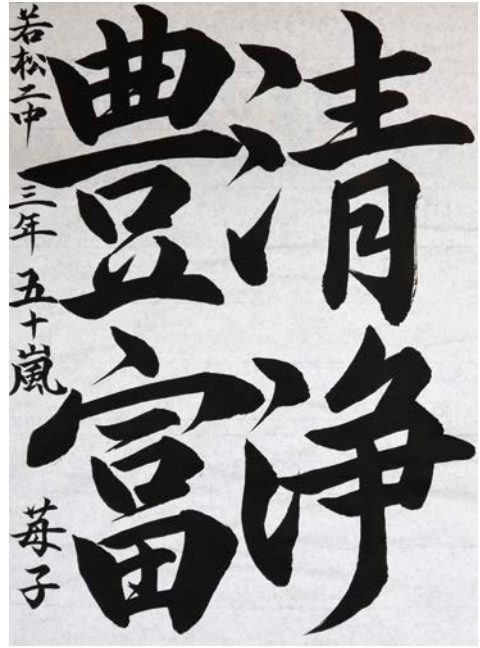 清浄
豊富
若松二中 三年 五十嵐 苺子